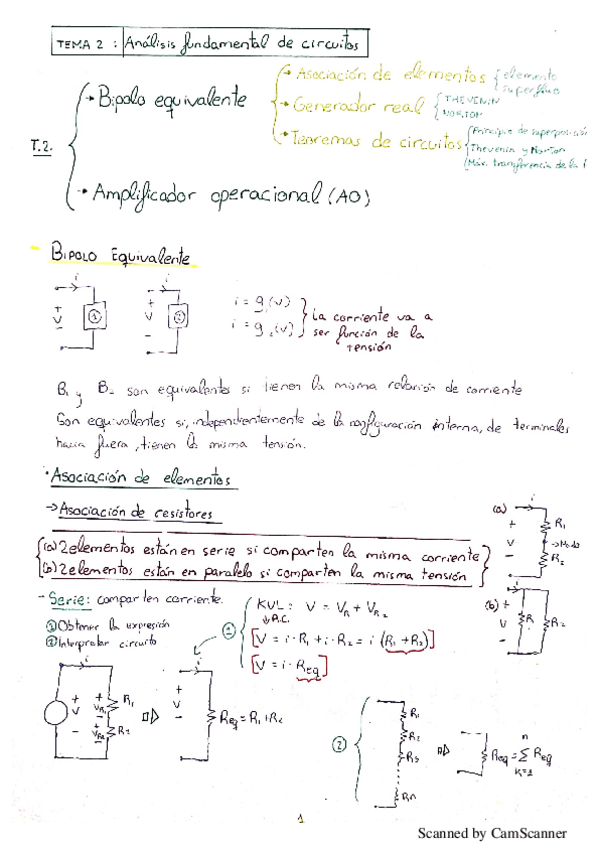 TEMA 2 : Análisis fundamental de circuitos
T.2.
• Bipolo equivalente
• Asociación de elementos { elemento superfluo
• Generador real { THEVENIN NORTON
• Teoremas de circuitos { Principio de superposición
Thevenin y Norton
Máx. transferencia de la
• Amplificador operacional (AO)
- BIPOLO EQUIVALENTE
i
+
V
-
①
i
+
V
-
②
i = g₁(v)
i = g₂(v)
La corriente va a
ser función de la
tensión
B₁ y B₂ son equivalentes si tienen la misma relación de corriente
Son equivalentes si, independientemente de la configuración interna, de terminales
hacia fuera, tienen la misma tensión.
• Asociación de elementos
→ Asociación de resistores
(a) 2 elementos están en serie si comparten la misma corriente
(b) 2 elementos están en paralelo si comparten la misma tensión
(a)
i
+
V
-
R₁
→ Nodo
R₂
(b)
+
V
-
R₁
R₂
- Serie: comparten corriente.
① Obtener la expresión
② Interpretar circuito
①
KVL: V = VR₁ + VR₂
↓ R.C.
[V = i · R₁ + i · R₂ = i (R₁ + R₂)]
[V = i · Req]
i
+
V
-
+
VR₁
-
R₁
+
VR₂
-
R₂
⇒
i
+
V
-
Req = R₁ + R₂
②
R₁
R₂
R₃
Rn
⇒
Req = Σ Req
n
K=1
1
Scanned by CamScanner